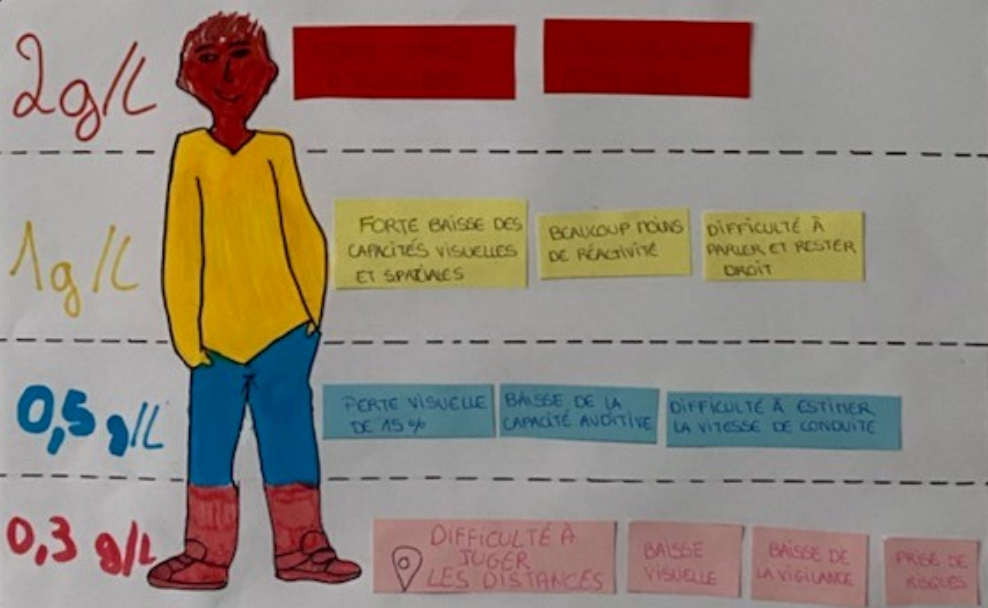 2g/L
1g/L
FORTE BAISSE DES
CAPACITÉS VISUELLES
ET SPATIALES
BEAUCOUP MOINS
DE RÉACTIVITÉ
DIFFICULTÉ À
PARLER ET RESTER
DROIT
0,5 g/L
PERTE VISUELLE
DE 15%
BAISSE DE LA
CAPACITÉ AUDITIVE
DIFFICULTÉ À ESTIMER
LA VITESSE DE CONDUITE
0,3 g/L
DIFFICULTÉ À
JUGER
LES DISTANCES
BAISSE
VISUELLE
BAISSE DE
LA VIGILANCE
PRISE DE
RISQUES